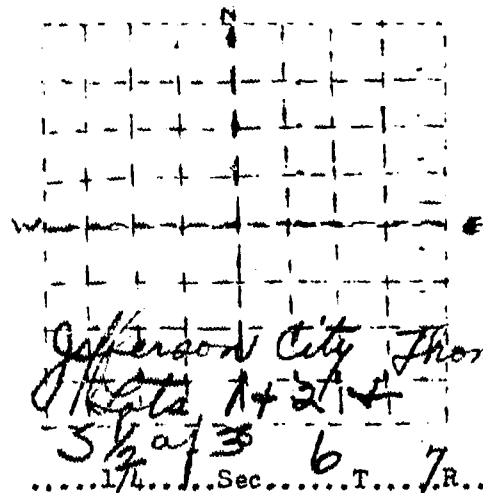 N
W E
Jefferson City Thor
Lots 1 + 2 +
S 1/2 of 3 6 7
.....1/4....Sec......T....R..